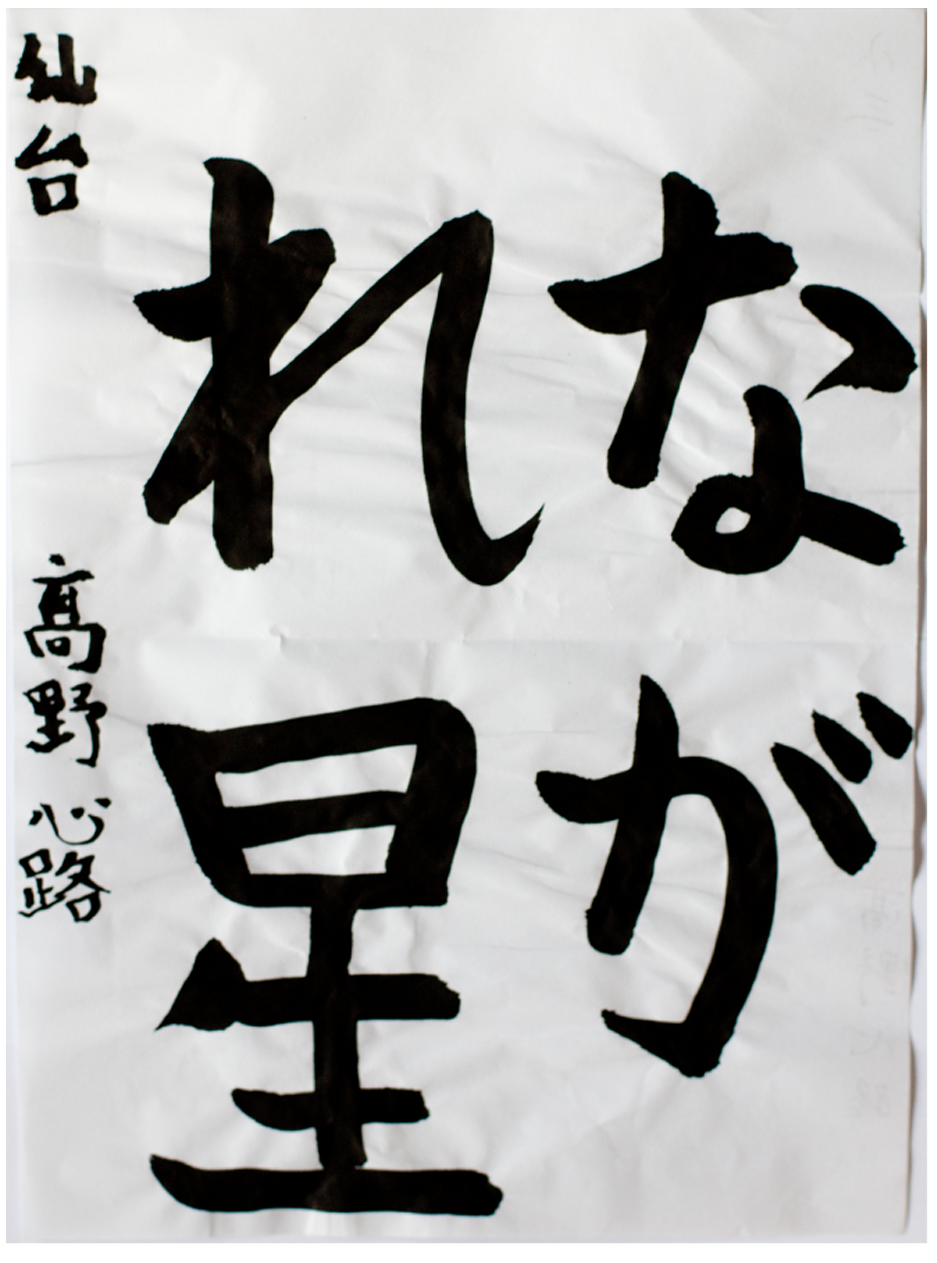 なが
れ星
仙台 高野心路